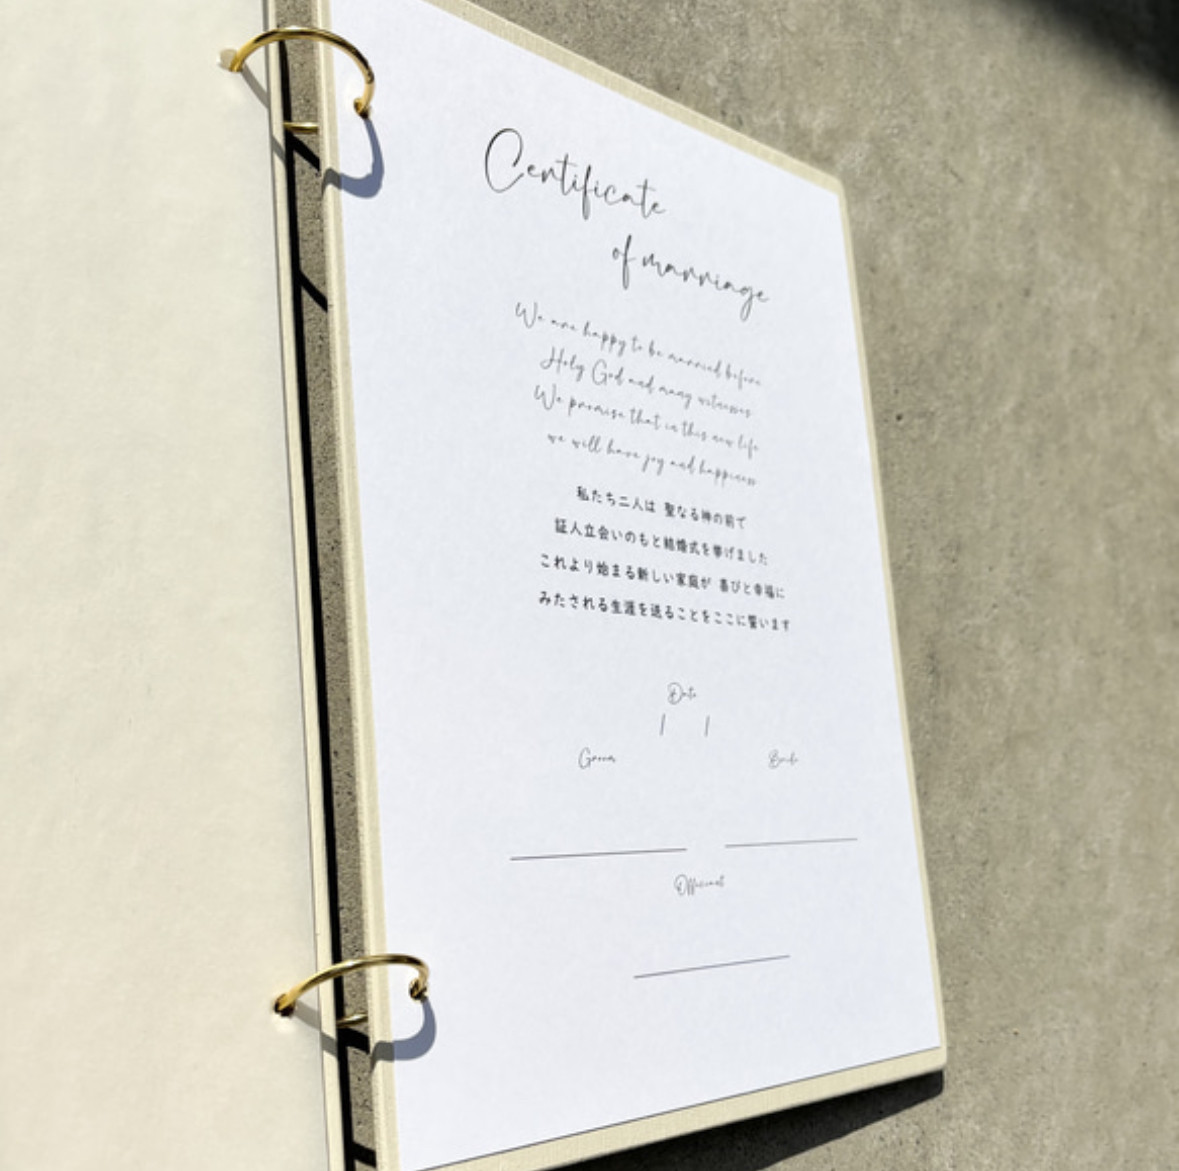 Certificate
of marriage
We are happy to be married before
Holy God and many witnesses
We promise that in this new life
we will have joy and happiness
私たち二人は 聖なる神の前で
証人立会いのもと結婚式を挙げました
これより始まる新しい家庭が 喜びと幸福に
みたされる生涯を送ることをここに誓います
Date
/ /
Groom Bride
Officiant